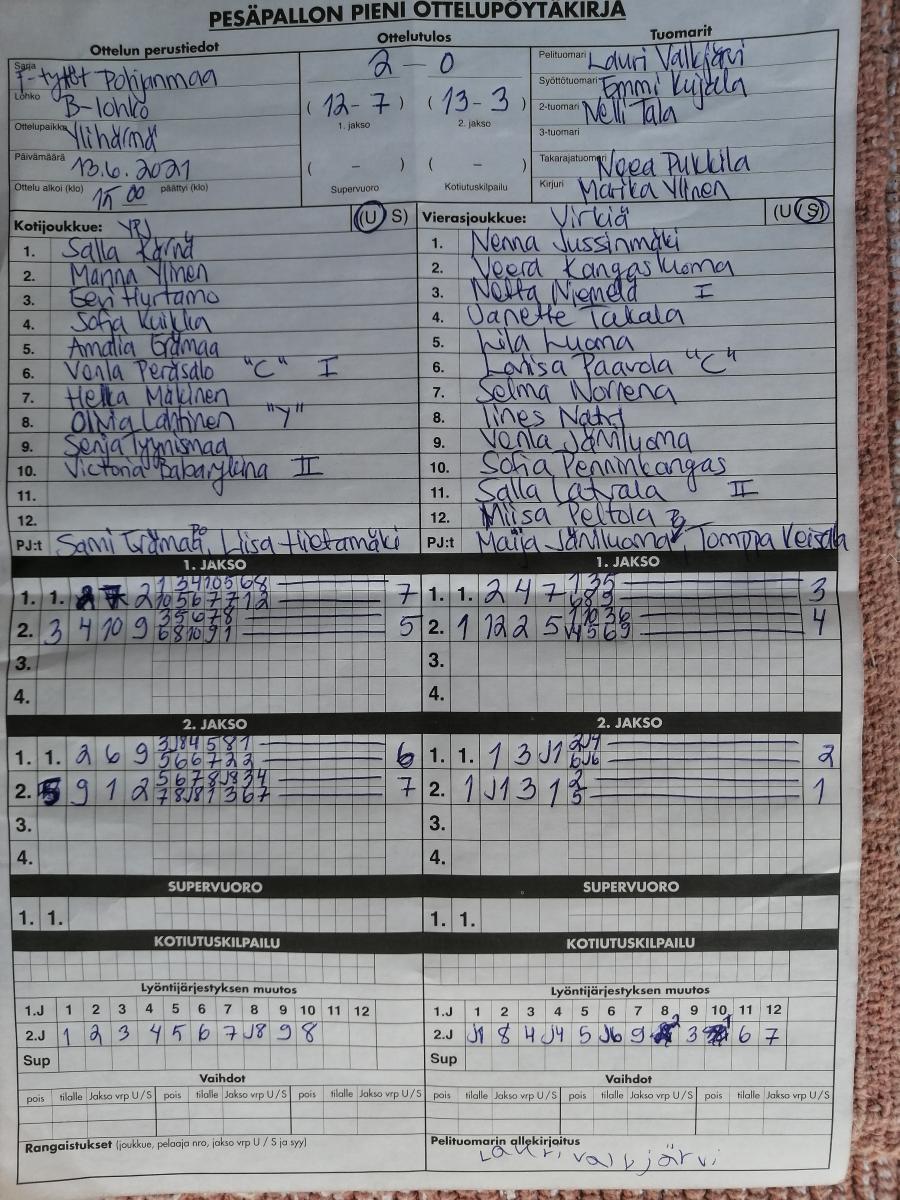 PESÄPALLON PIENI OTTELUPÖYTÄKIRJA
Ottelun perustiedot
Ottelutulos
Tuomarit
Sarja F-tytöt Pohjanmaa
Lohko B-lohko
Ottelupaikka Ylihärmä
Päivämäärä 13.6.2021
Ottelu alkoi (klo) 15 00 päättyi (klo)
2 – 0
( 12 - 7 ) ( 13 - 3 )
1. jakso 2. jakso
( – ) ( – )
Supervuoro Kotiutuskilpailu
Pelituomari Lauri Valkjärvi
Syöttötuomari Emmi Kujala
2-tuomari Nelli Tala
3-tuomari
Takarajatuomari Noea Pukkila
Kirjuri Marika Ylinen
Kotijoukkue: YPJ (U S)
1. Salla Kärnä
2. Manna Ylinen
3. Eevi Hurtamo
4. Sofia Kuikka
5. Amalia Grämaa
6. Venla Peräsalo "C" I
7. Helka Mäkinen
8. Olivia Lahtinen "Y"
9. Senja Tyynismaa
10. Victoria Babarykina II
11.
12.
PJ:t Sami Grämaa, Liisa Hietamäki
Vierasjoukkue: Virkiä (U S)
1. Nenna Jussinmäki
2. Veera Kangasluoma
3. Netta Niemelä I
4. Janette Takala
5. Lila Luoma
6. Larisa Paavola "C"
7. Selma Norrena
8. Iines
9. Venla Jäniluoma
10. Sofia Penninkangas
11. Salla Latvala II
12. Miisa Peltola
PJ:t Maija Jäniluoma, Tomppa
1. JAKSO
1. 1. 2 1 3 4 10 5 6 8 7
10 5 6 7 7 1 2
2. 3 4 10 9 3 5 6 7 8 5
6 8 10 9 1
3.
4.
1. JAKSO
1. 1. 2 4 7 1 3 5 3
6 8 2
2. 1 12 2 5 1 10 3 6 4
4 5 6 9
3.
4.
2. JAKSO
1. 1. 2 6 9 3 J8 4 5 8 1 6
5 6 6 7 2 2
2. 5 9 1 2 5 6 7 8 J8 3 4 7
7 8 J8 1 3 6 7
3.
4.
2. JAKSO
1. 1. 1 3 J1 2 J4 2
6 J6
2. 1 J1 3 1 2 1
5
3.
4.
SUPERVUORO
1. 1.
SUPERVUORO
1. 1.
KOTIUTUSKILPAILU
KOTIUTUSKILPAILU
Lyöntijärjestyksen muutos
1.J 1 2 3 4 5 6 7 8 9 10 11 12
2.J 1 2 3 4 5 6 7 J8 9 8
Sup
Lyöntijärjestyksen muutos
1.J 1 2 3 4 5 6 7 8 9 10 11 12
2.J J1 8 4 J4 5 J6 9 2 3 1 6 7
Sup
Vaihdot
pois tilalle Jakso vrp U / S pois tilalle Jakso vrp U / S pois tilalle Jakso vrp U / S
Vaihdot
pois tilalle Jakso vrp U / S pois tilalle Jakso vrp U / S pois tilalle Jakso vrp U / S
Rangaistukset (joukkue, pelaaja nro, jakso vrp U / S ja syy)
Pelituomarin allekirjoitus
Lauri Valkjärvi